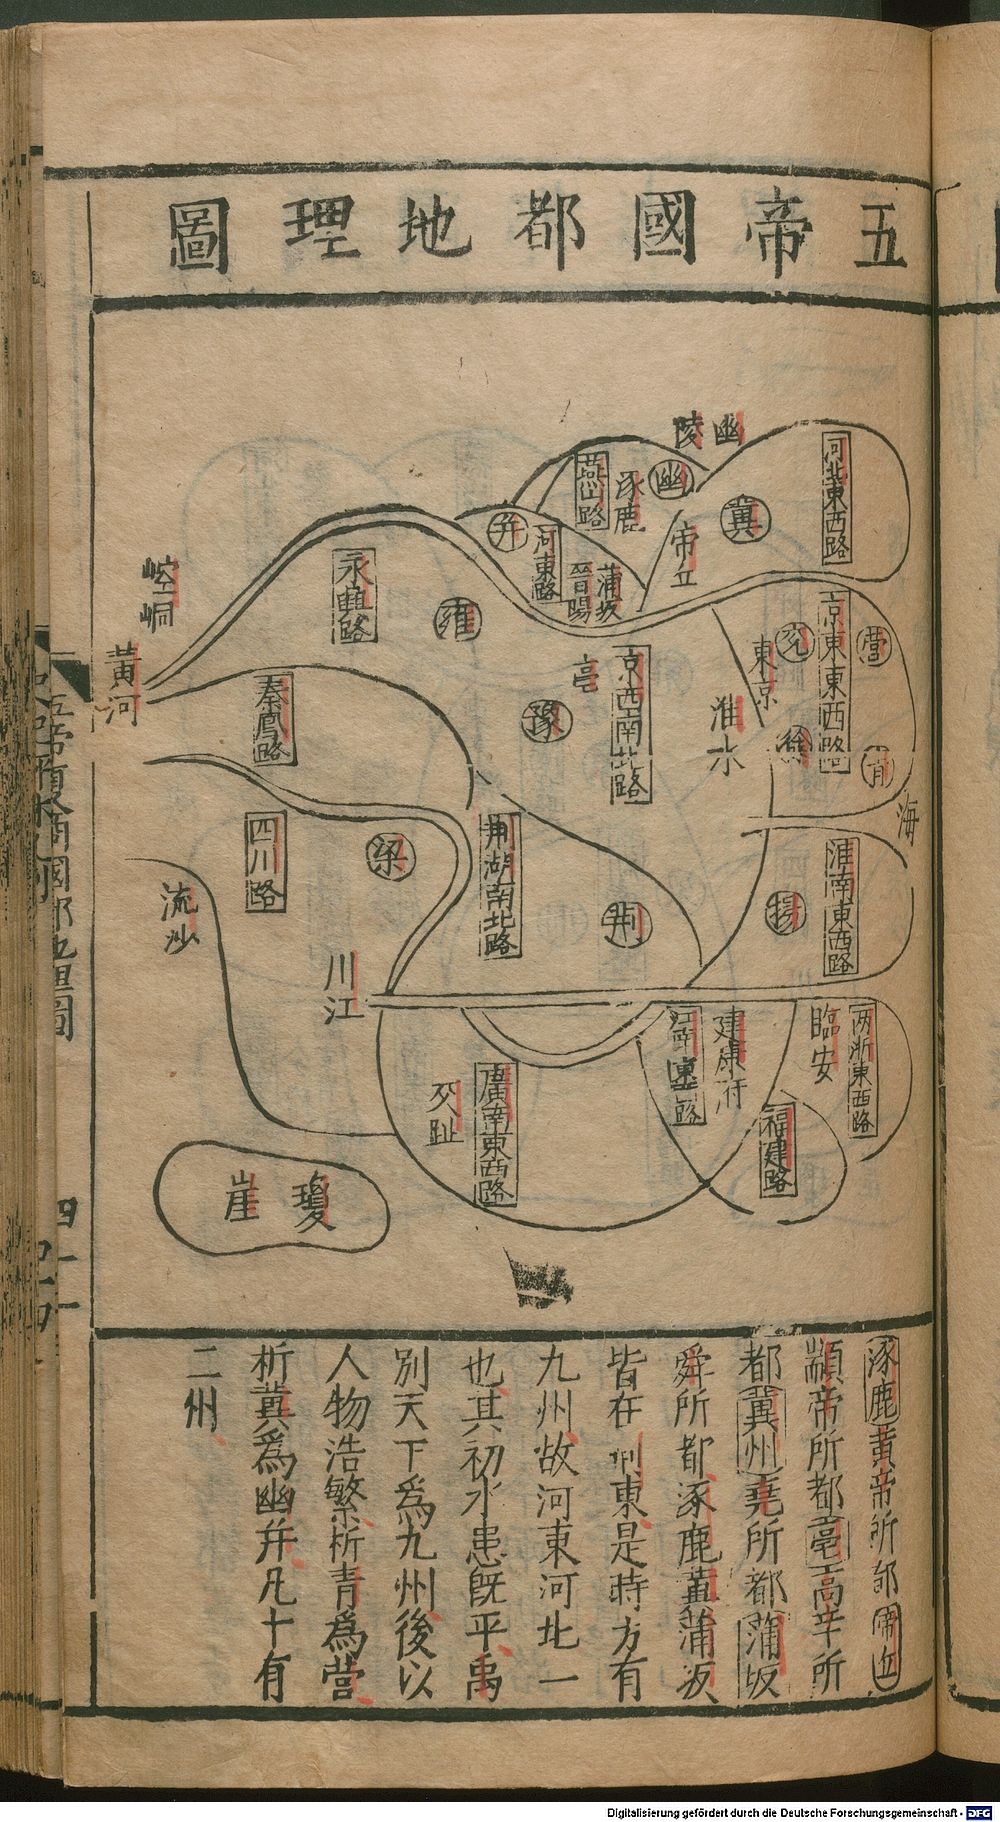 五帝國都地理圖
幽陵
河北東西路
冀
幽
涿鹿
燕山路
帝丘
并
河東路
蒲坂
晉陽
永興路
崆峒
黃河
雍
營
京東東西路
兖
東京
徐
青
海
淮水
京西南北路
亳
豫
秦鳳路
四川路
梁
荆湖南北路
荆
淮南東西路
揚
流沙
川江
两浙東西路
臨安
建康府
福建路
廣南東西路
交趾
瓊崖
涿鹿黃帝所都帝丘
顓帝所都亳高辛所
都冀州堯所都蒲坂
舜所都涿鹿冀蒲坂
皆在東是時方有
九州故河東河北一
也其初水患既平禹
別天下爲九州後以
人物浩繁析青爲營
析冀爲幽并凡十有
二州
Digitalisierung gefördert durch die Deutsche Forschungsgemeinschaft - DFG